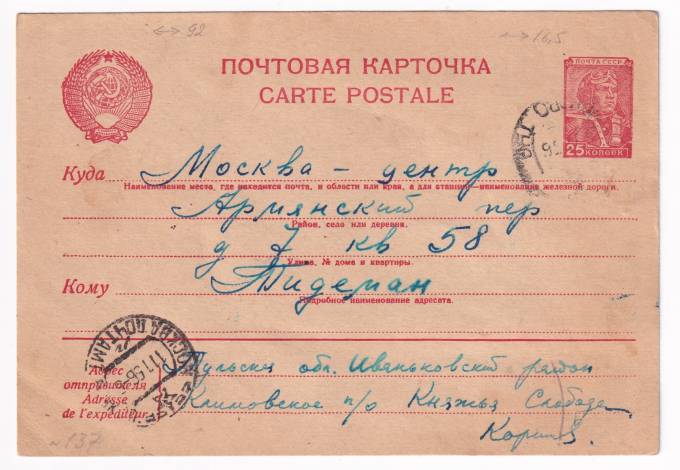 92
16,5
ПОЧТОВАЯ КАРТОЧКА
CARTE POSTALE
ПОЧТА СССР
25 КОПЕЕК
Куда Москва - центр
Наименование места, где находится почта, и области или края, а для станции—наименование железной дороги.
Армянский пер
Район, село или деревня.
д 7 кв 58
Улица, № дома и квартиры.
Кому Тидеман
Подробное наименование адресата.
МОСКВА ПОЧТАМТ
Адрес отправителя
Adresse de l'expéditeur
Тульская обл. Иваньковский район
Климовское п/о Княжья Слобода
137